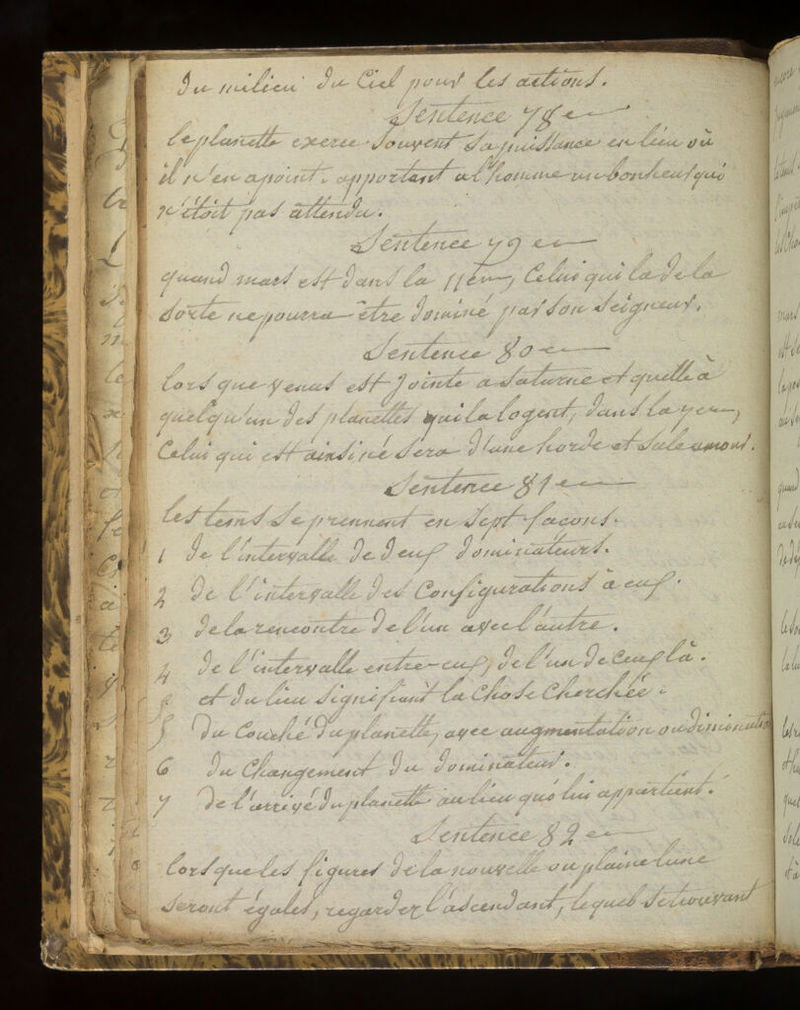 du milieu du Ciel pour les actions.
Sentence 78e
le planette exerce souvent sa puissance en lieu où
il n'en a point. apportant a l'homme un bonheur qui
n'étoit pas attendu.
Sentence 79e
quand mars est dans la 11em, Celui qui la de la
sorte ne pourra être dominé par son seigneur.
Sentence 80e
lors que venus est jointe a saturne et quelle à
quelqu'un des planettes qui la logent, dans la 7em,
Celui qui est ainsi né sera d'une horde et sale amour.
Sentence 81e
les tems se prennent en sept facons.
1 de l'intervalle de deux dominateurs.
2 de l'intervalle des Configurations à eux.
3 de la rencontre de l'un avec l'autre.
4 de l'intervalle entre eux, de l'un de Ceux là.
et du lieu signifiant la Chose Cherchée.
5 du Couché du planette, avec augmentation ou diminution
6 du Changement du dominateur.
7 de l'arrivé du planette au lieu qui lui appartient.
Sentence 82e
lors que les figures de la nouvelle ou plaine lune
seront égales, regardez l'ascendant, lequel se trouvant